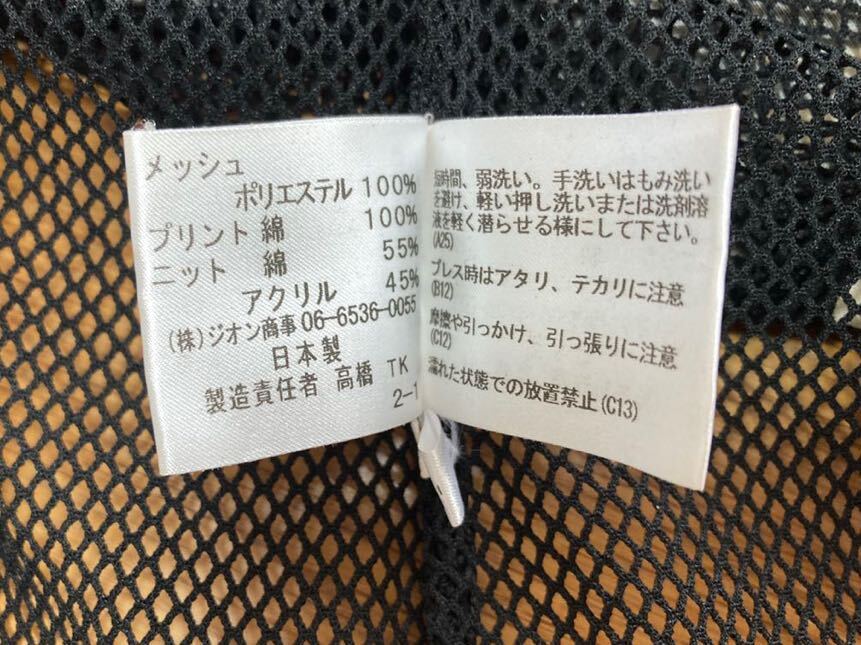 メッシュ
ポリエステル 100%
プリント 綿 100%
ニット 綿 55%
アクリル 45%
(株)ジオン商事 06-6536-0055
日本製
製造責任者 高橋 TK
2-1
短時間、弱洗い。手洗いはもみ洗い
を避け、軽い押し洗いまたは洗剤溶
液を軽く潜らせる様にして下さい。
(A25)
プレス時はアタリ、テカリに注意
(B12)
摩擦や引っかけ、引っ張りに注意
(C12)
濡れた状態での放置禁止(C13)